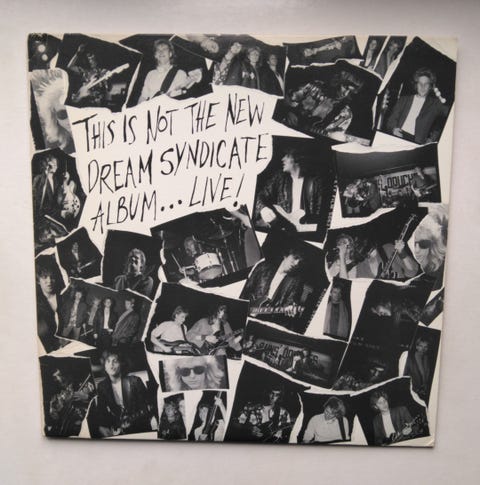 THIS IS NOT THE NEW
DREAM SYNDICATE
ALBUM... LIVE!